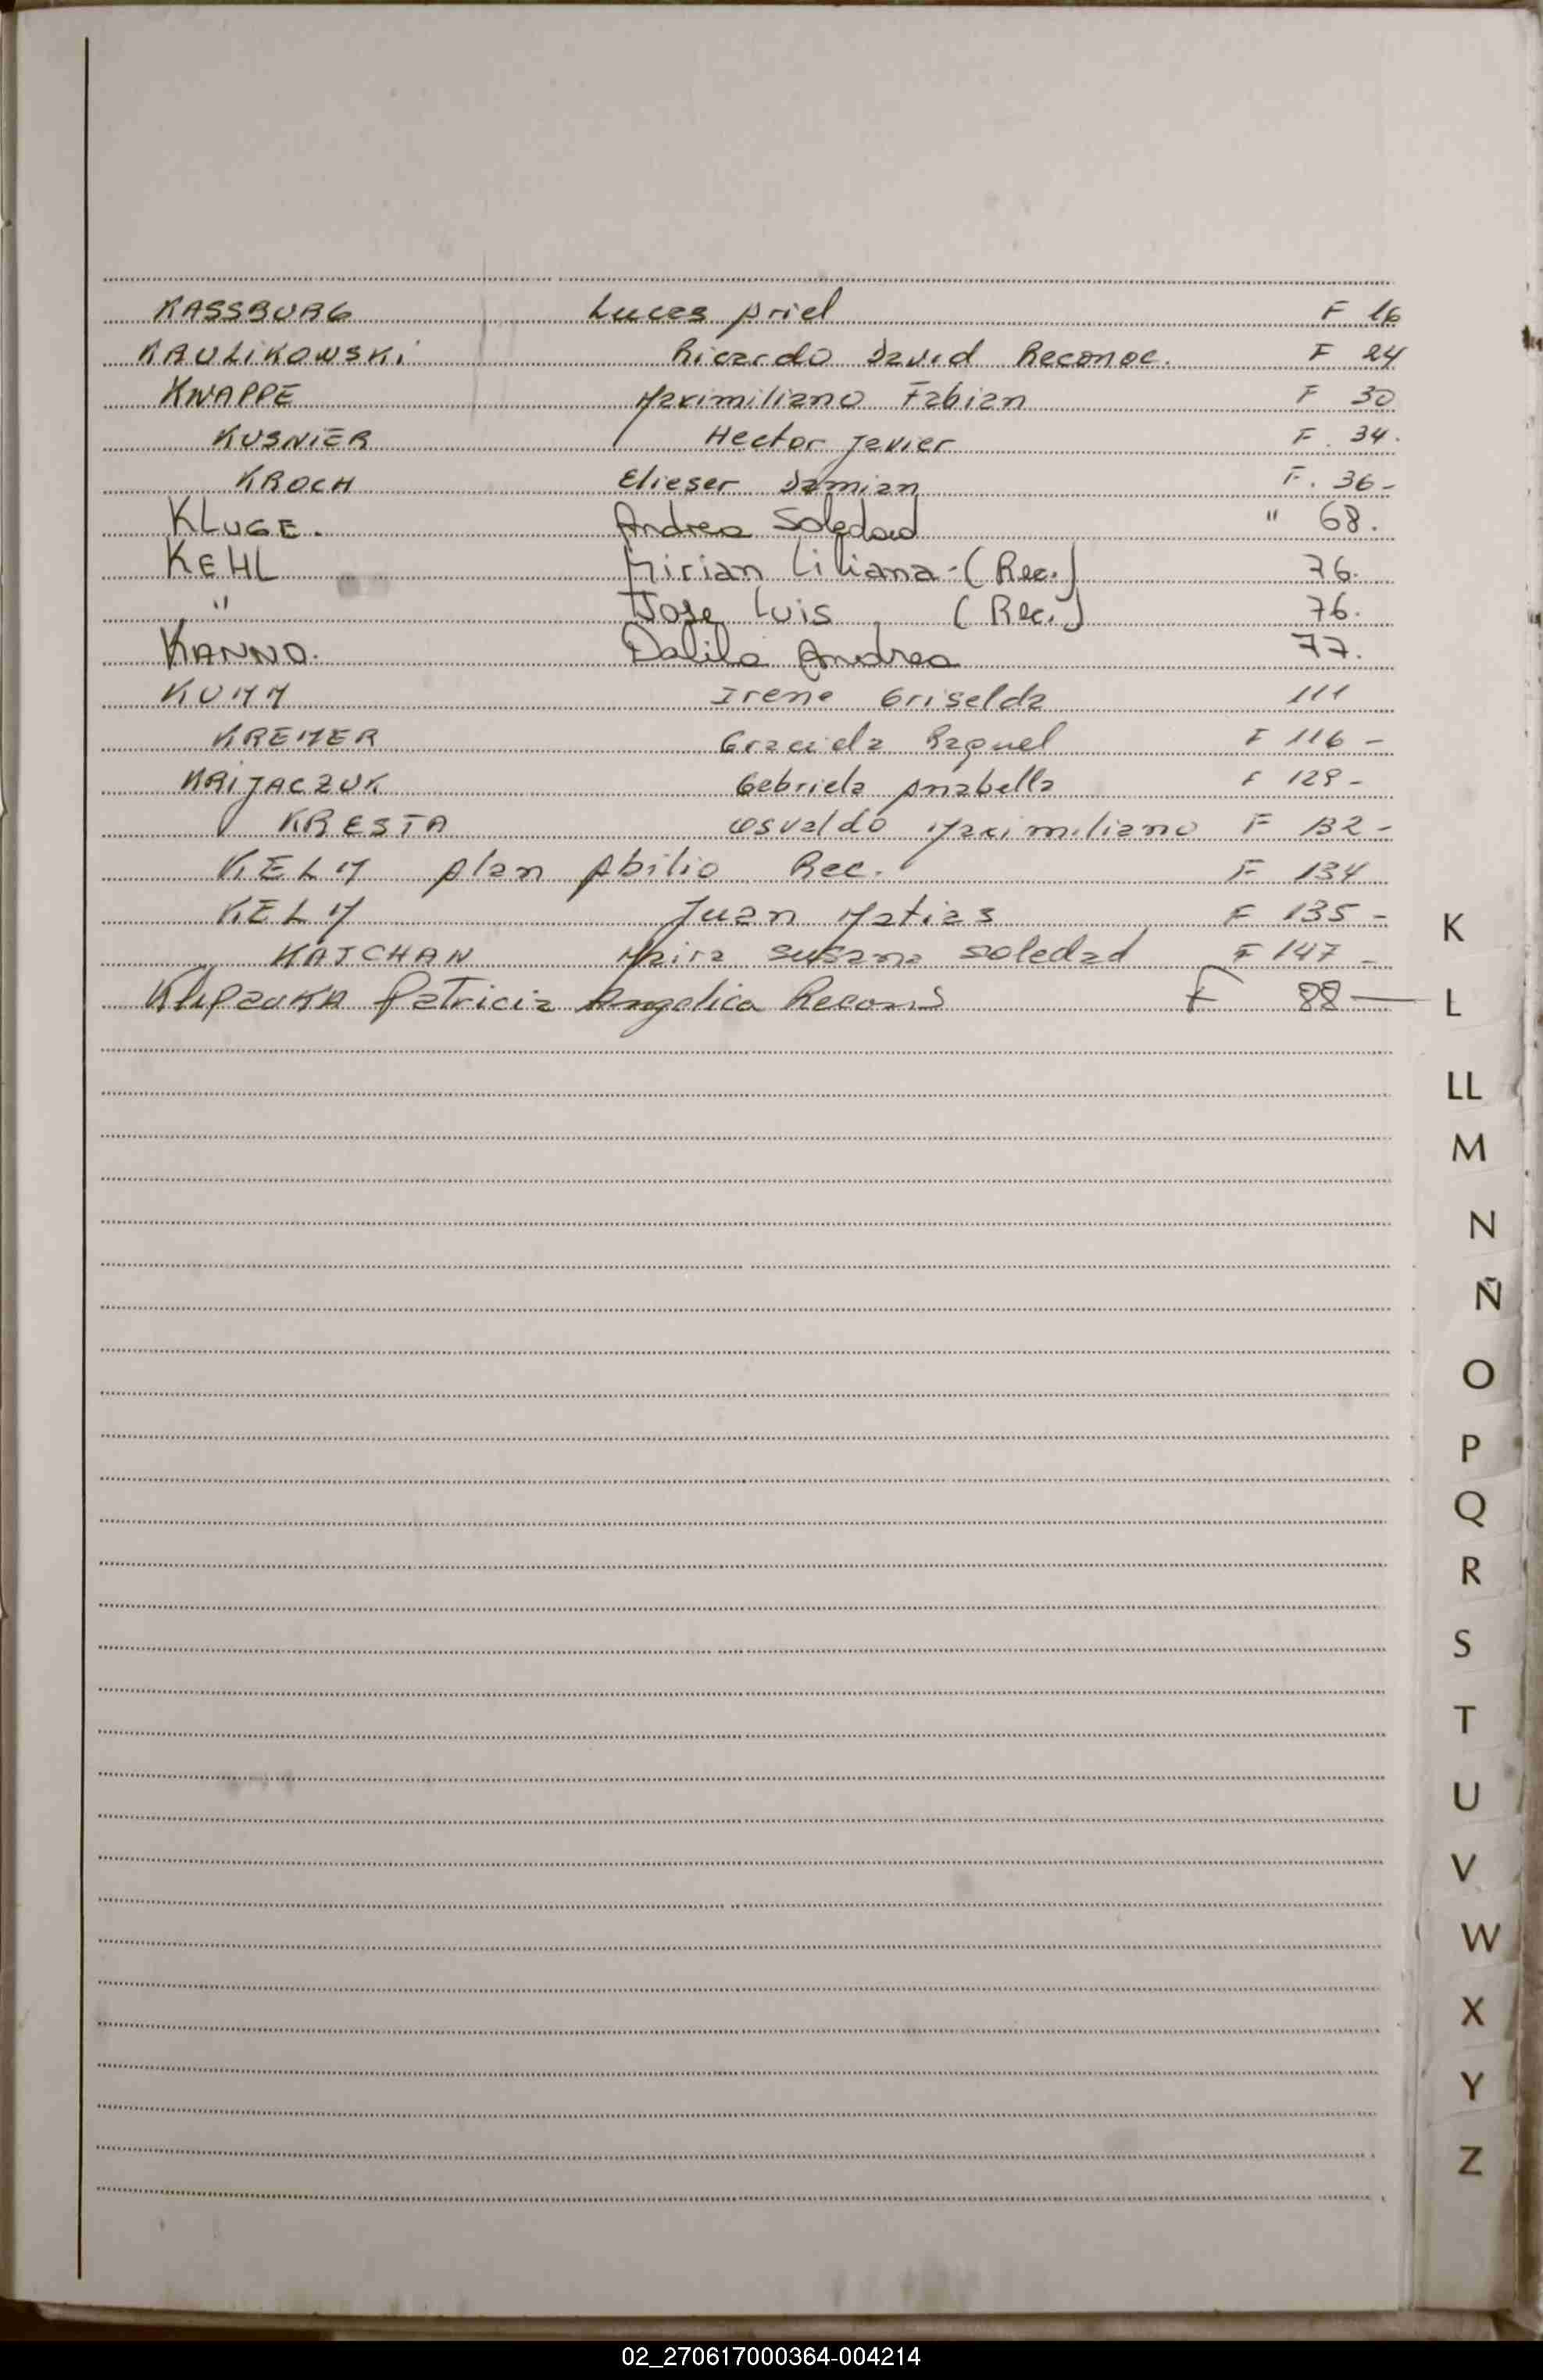 KASSBURG Lucas Ariel F 16
KAULIKOWSKi Ricardo David Reconoc. F 24
KNAPPE Maximiliano Fabian F 30
KUSNiER Hector Javier F. 34.
KROCH Elieser Damian F. 36-
KLUGE. Andrea Soledad " 68.
KEHL Mirian Liliana-(Rec.) 76.
" Jose Luis (Rec.) 76.
KANNO. Dalila Andrea 77.
KUMM Irene Griselda 111
KREMER Graciela Raquel F 116 -
KRiJACZUK Gabriela Anabella F 129 -
KRESTA Osvaldo Maximiliano F 132 -
KELM Alan Abilio Rec. F 134
KELM Juan Matias F 135 -
KATCHAN Maira Susana Soledad F 147 -
Patricia Angelica F 88 —
K
L
LL
M
N
Ñ
O
P
Q
R
S
T
U
V
W
X
Y
Z
02_270617000364-004214